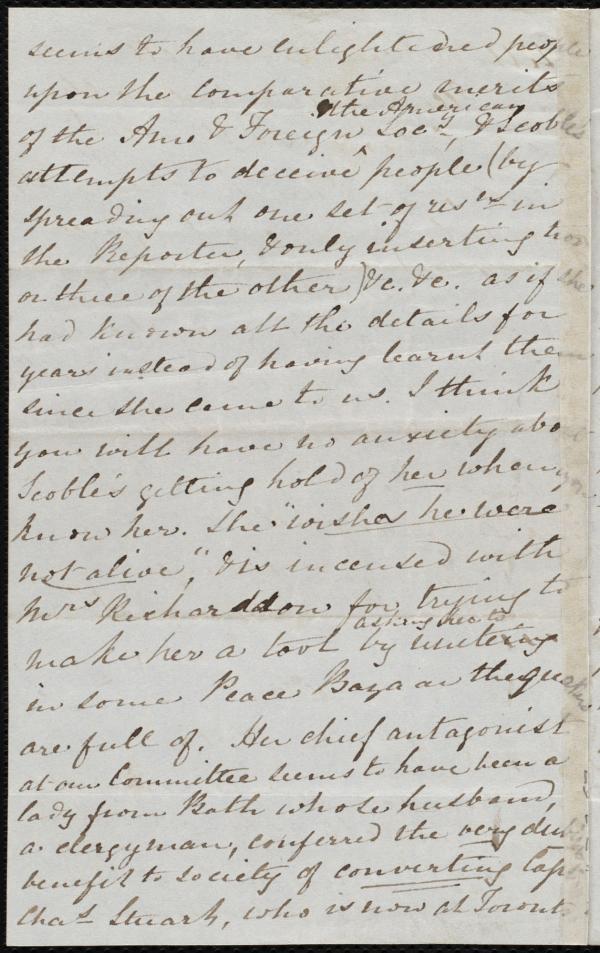 seems to have enlightened people
upon the comparative merits
of the Am. & Foreign Socy, & Scoble's
the American
attempts to deceive ^ people (by
spreading out one set of resns in
the Reporter, & only inserting two
or three of the other) &c. &c. as if she
had known all the details for
years instead of having learnt them
since she came to us. I think
you will have no anxiety about
Scoble's getting hold of her when you
know her. She "wishes he were
not alive", & is incensed with
Mrs Richardson for trying to
make her a tool by asking her to
in some Peace Bazaar the quakers
are full of. Her chief antagonist
at our Committee seems to have been a
lady from Bath whose husband,
a clergyman, conferred the very
benefit to society of converting Capt
Chas Stuart, who is now at Toronto